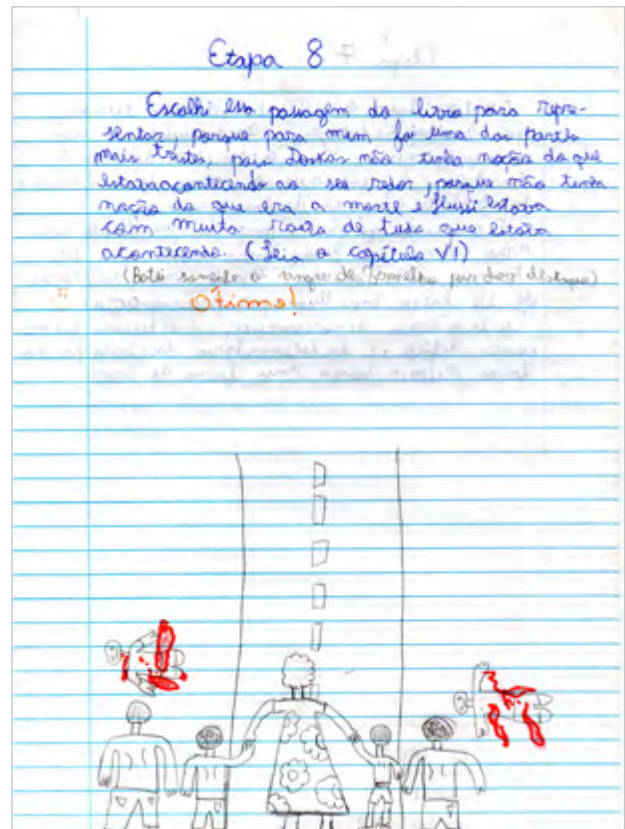 Etapa 8
Escolhi essa passagem do livro para repre-
sentar, porque para mim foi uma das partes
mais tristes, pois Doskas não tinha noção do que
estava acontecendo ao seu redor, porque não tinha
noção do que era a morte e estava
com muita raiva de tudo que estava
acontecendo. (Leia o capítulo VI)
(Botei somente o sangue de vermelho por dar destaque)
Ótimo!